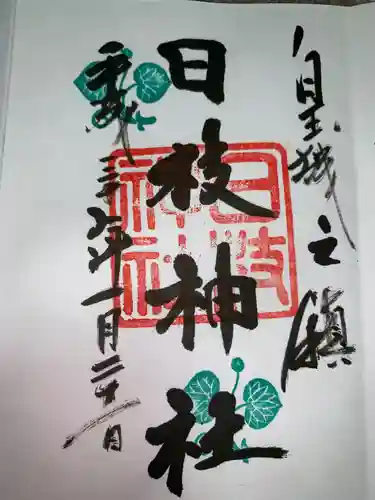 皇城之鎮
日枝神社
日枝神社
平成三十年一月二十日